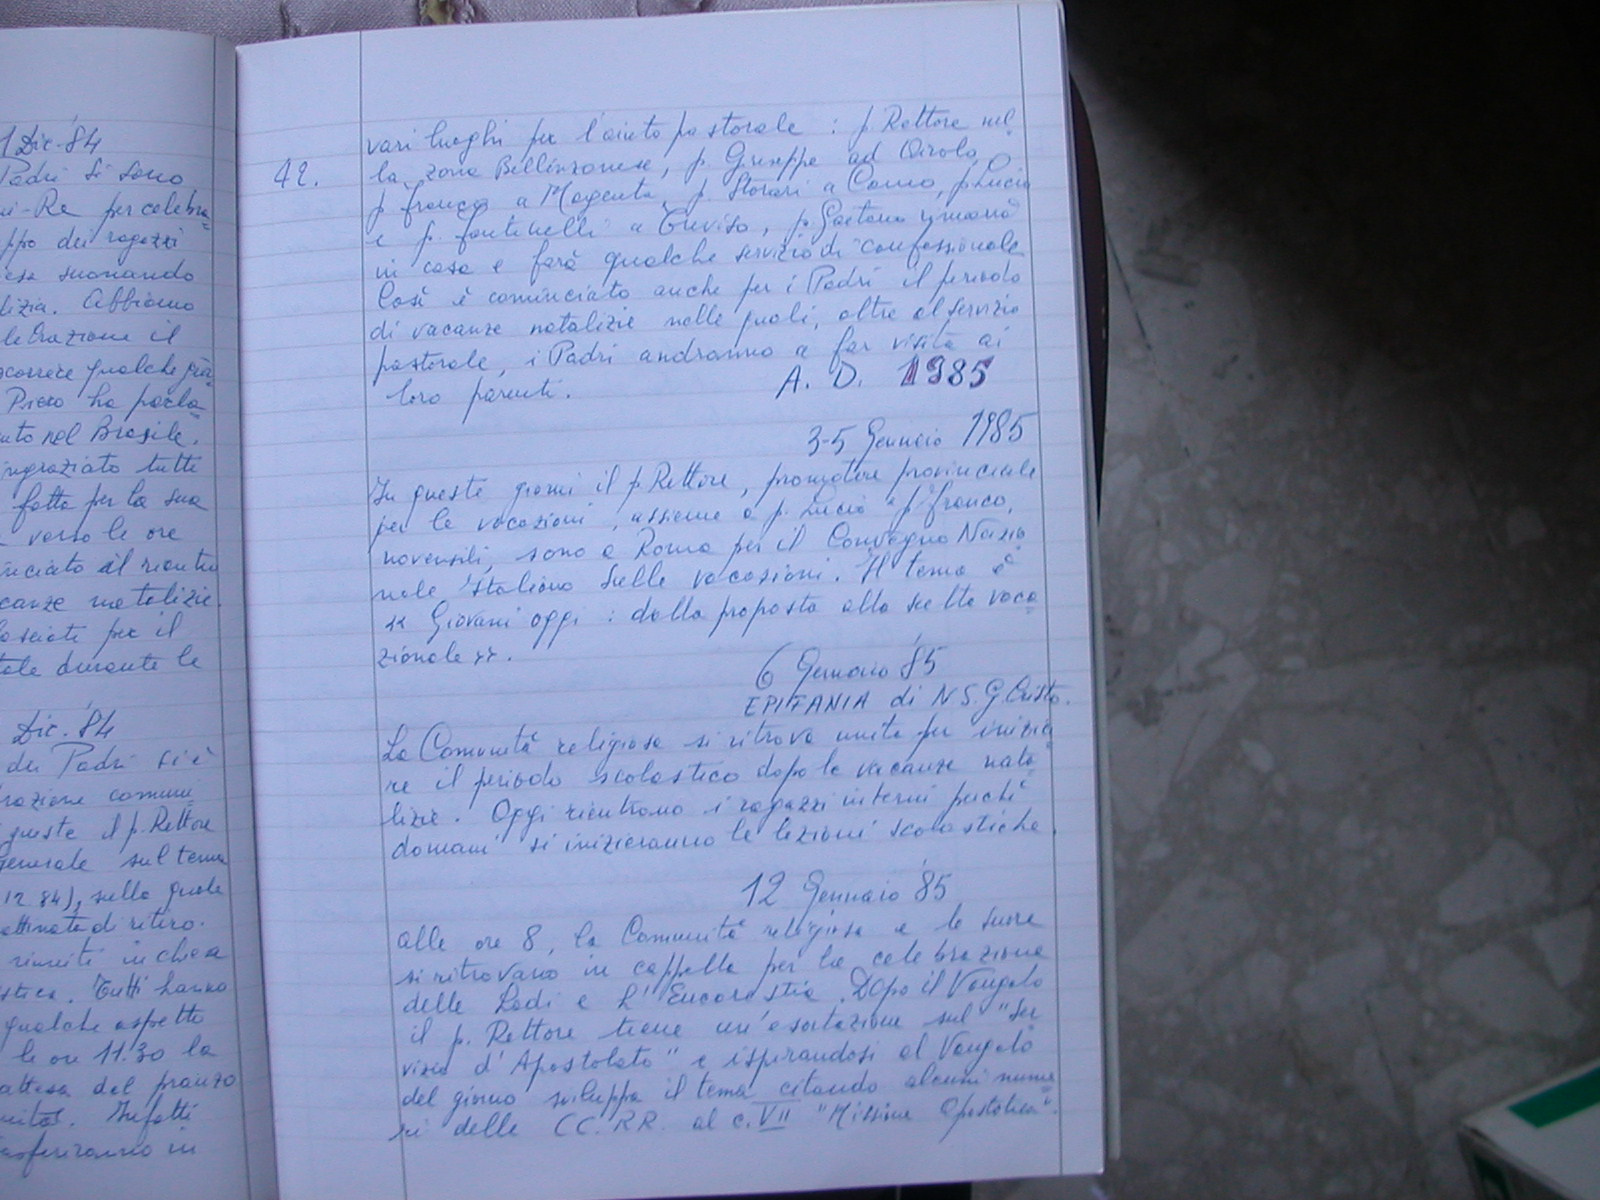 1 Dic. '84
Padri si sono
per celebra
ppo dei ragazzi
esa suonando
lizia. Abbiamo
lebrazione il
scorrere qualche
Piero ha parla
uto nel Brasile.
ingraziato tutti
fatto per la sua
verso le ore
nciato il rientro
canze natalizie.
lasciati per il
tale durante le
Dic. '84
dei Padri si è
razione comuni
queste il p. Rettore
generale sul tema
12 84), sulla quale
attinata di ritiro.
riuniti in chiesa
stica. Tutti hanno
qualche aspetto
le ore 11.30 la
attesa del pranzo
Infatti
asferiranno in
42.
vari luoghi per l'aiuto pastorale : p. Rettore nel
la zona Bellinzonese, p. Giuseppe ad Airolo,
p. franco a Magenta, p. Storari a Como, p. Lucio
e p. fantinelli a Treviso, p. Gaetano rimarrà
in casa e farà qualche servizio di confessionale
Così è cominciato anche per i Padri il periodo
di vacanze natalizie nelle quali, oltre al servizio
pastorale, i Padri andranno a far visita ai
loro parenti.
A. D. 1985
3-5 Gennaio 1985
In questi giorni il p. Rettore, promotore provinciale
per le vocazioni, assieme a p. Lucio e p. franco,
novensili, sono a Roma per il Convegno Nazio
nale Italiano sulle vocazioni. Il tema è
« Giovani oggi : dalla proposta alla scelta voca
zionale ».
6 Gennaio '85
EPIFANIA di N.S.G. Cristo.
La Comunità religiosa si ritrova unita per inizia
re il periodo scolastico dopo le vacanze nata
lizie. Oggi rientrano i ragazzi interni perché
domani si inizieranno le lezioni scolastiche.
12 Gennaio '85
alle ore 8, la Comunità religiosa e le suore
si ritrovano in cappella per la celebrazione
delle Lodi e l'Eucarestia. Dopo il Vangelo
il p. Rettore tiene un'esortazione sul "Ser
vizio d'Apostolato" e ispirandosi al Vangelo
del giorno sviluppa il tema citando alcuni nume
ri delle CC. RR. al c. VII "Missione Apostolica".